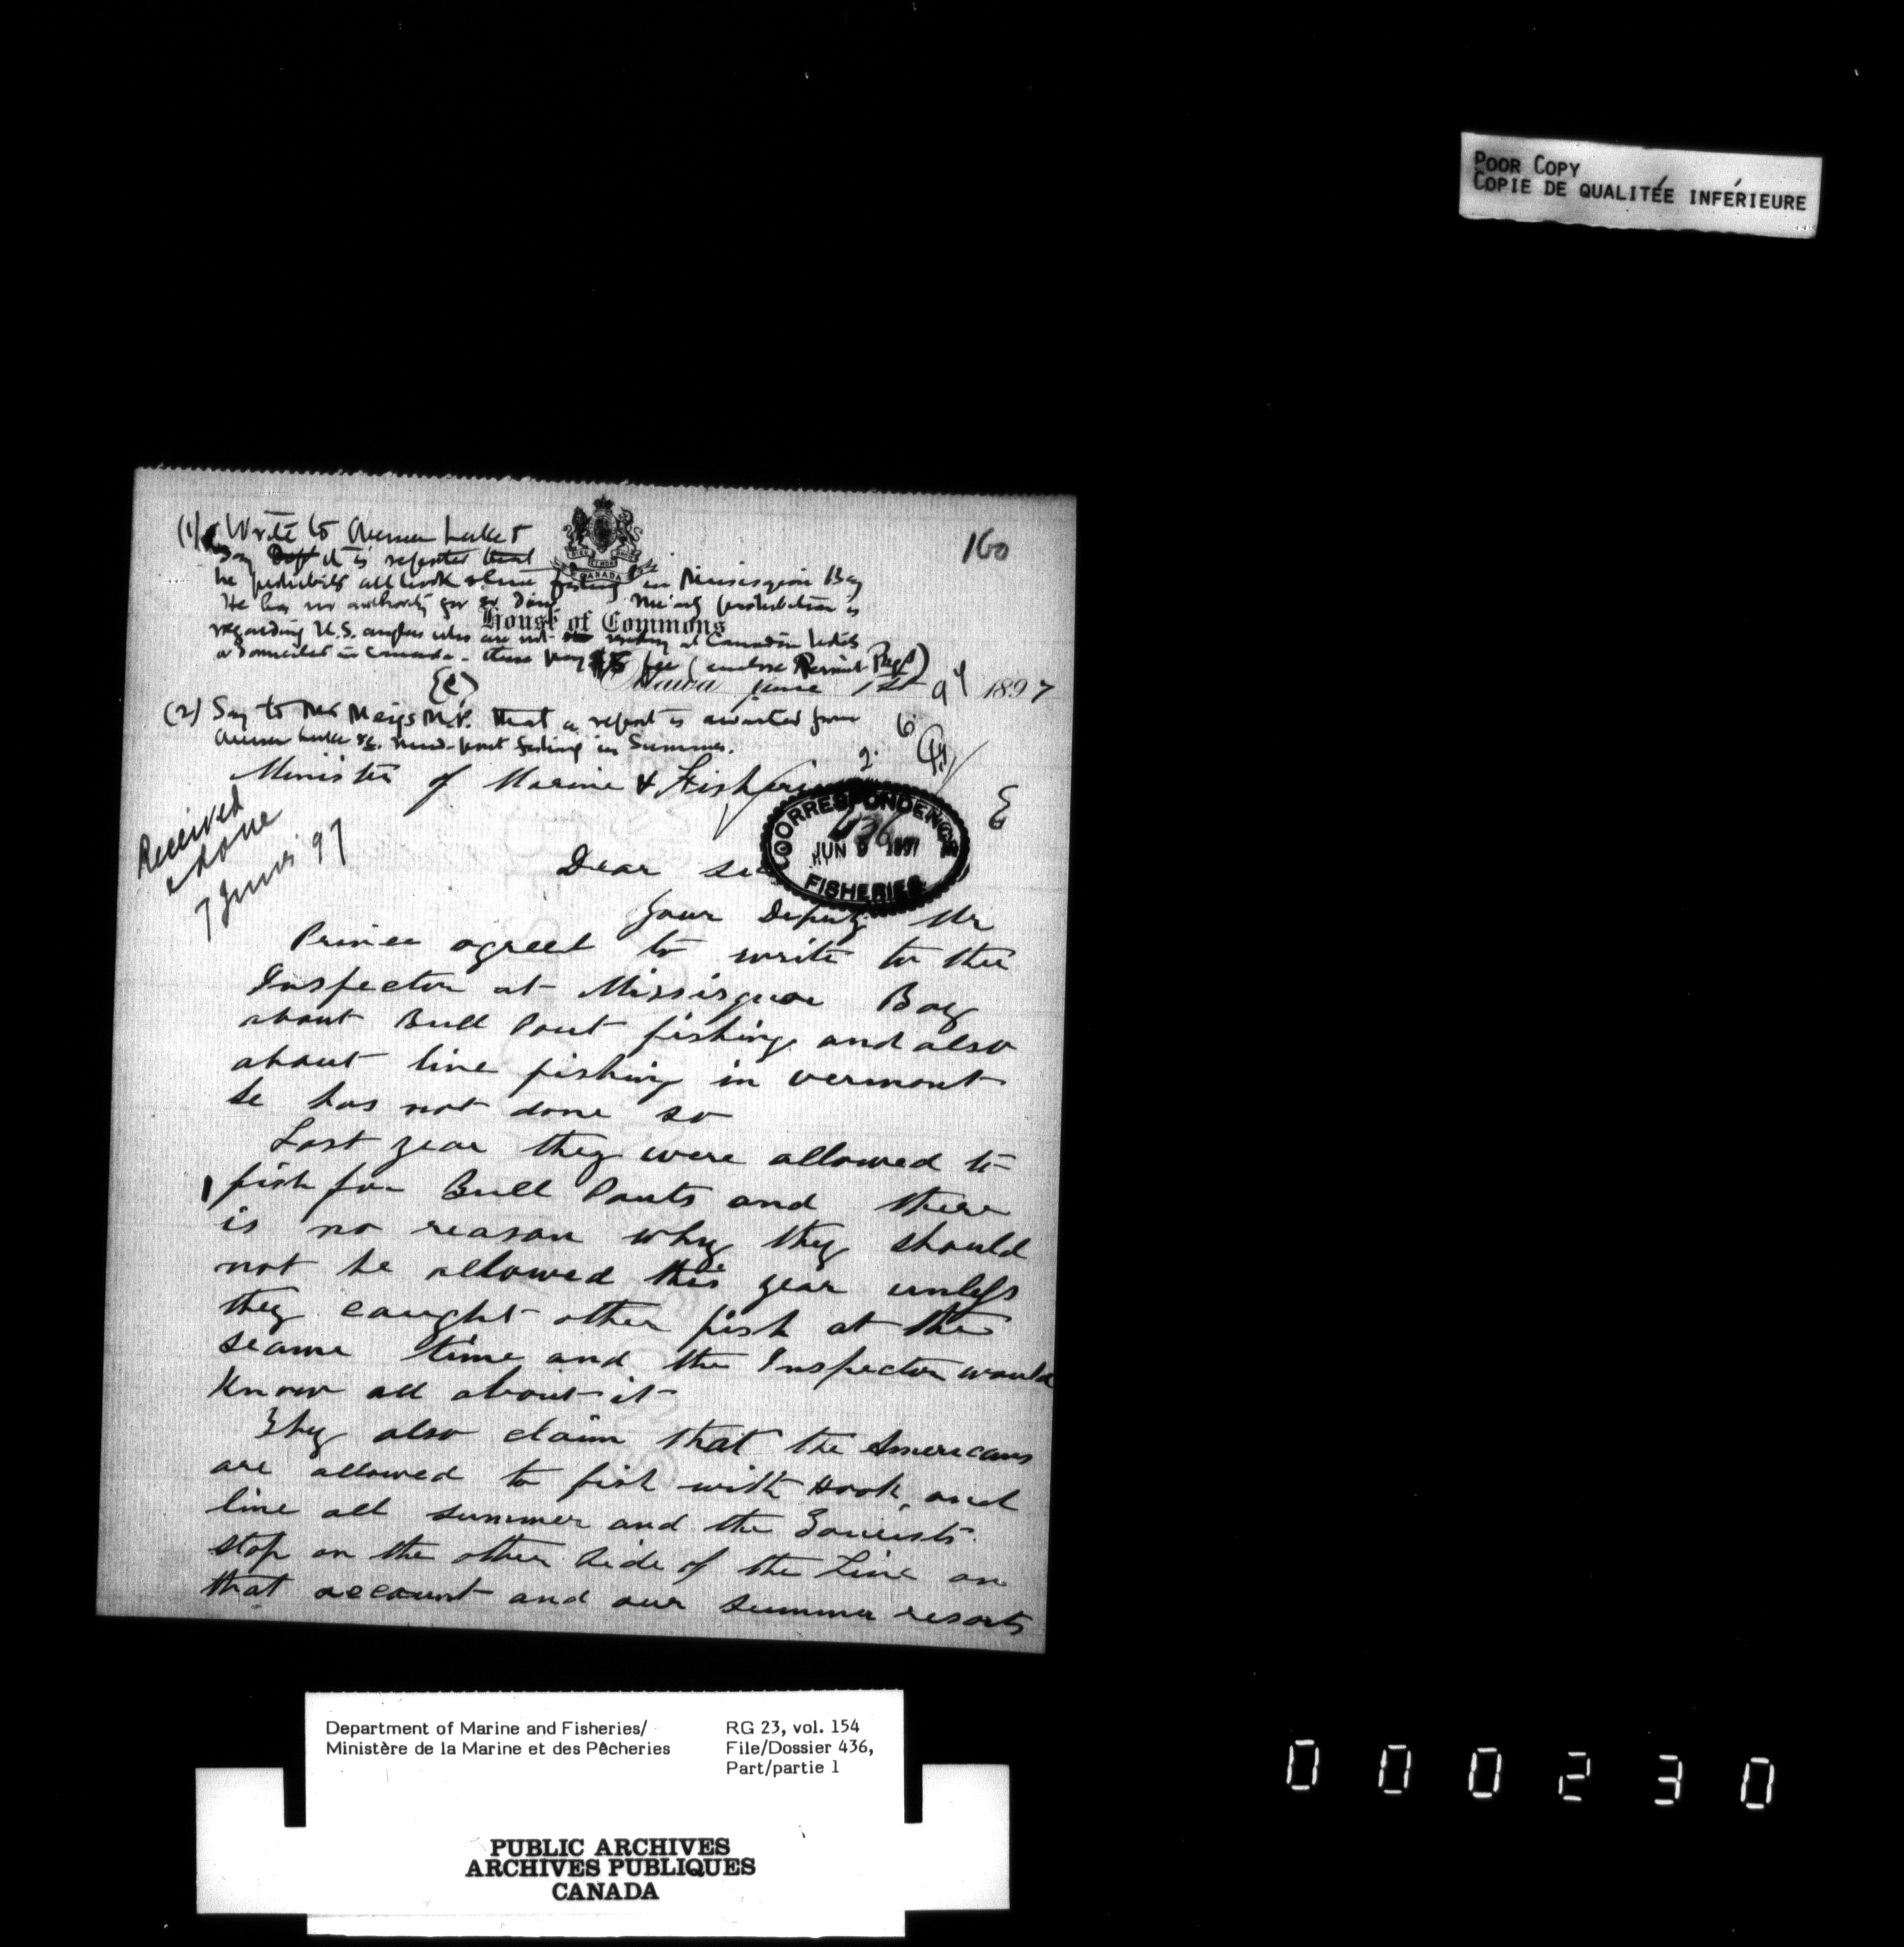 POOR COPY
COPIE DE QUALITÉE INFÉRIEURE
160
(1) Write to Luke &
Say it is reported that
he prohibits all hook & line fishing in Missisquoi Bay
He has no authority for so doing prohibition is
House of Commons
CANADA
regarding U.S. anglers who are not at Canadian hotels
or domiciled in Canada - these pay $5 fee (enclose Permit Regs)
Ottawa June 1st 1897
(2) Say to Mr Meigs M.P. that a report is awaited from
Luke re. mud-pout fishing in Summer.
Minister of Marine & Fisheries
Received
7 June 97
CORRESPONDENCE
436
JUN 1897
FISHERIES
Dear Sir
Your Deputy Mr
Prince agreed to write to the
Inspector at Missisquoi Bay
about Bull Pout fishing and also
about line fishing in vermont
he has not done so
Last year they were allowed to
fish for Bull Pouts and there
is no reason why they should
not be allowed this year unless
they caught other fish at the
seame time and the Inspector would
Know all about it
They also claim that the Americans
are allowed to fish with Hook, and
line all summer and the Tourists
stop on the other side of the Line on
that account and our summer resorts
Department of Marine and Fisheries/
Ministère de la Marine et des Pêcheries
RG 23, vol. 154
File/Dossier 436,
Part/partie 1
PUBLIC ARCHIVES
ARCHIVES PUBLIQUES
CANADA
000230